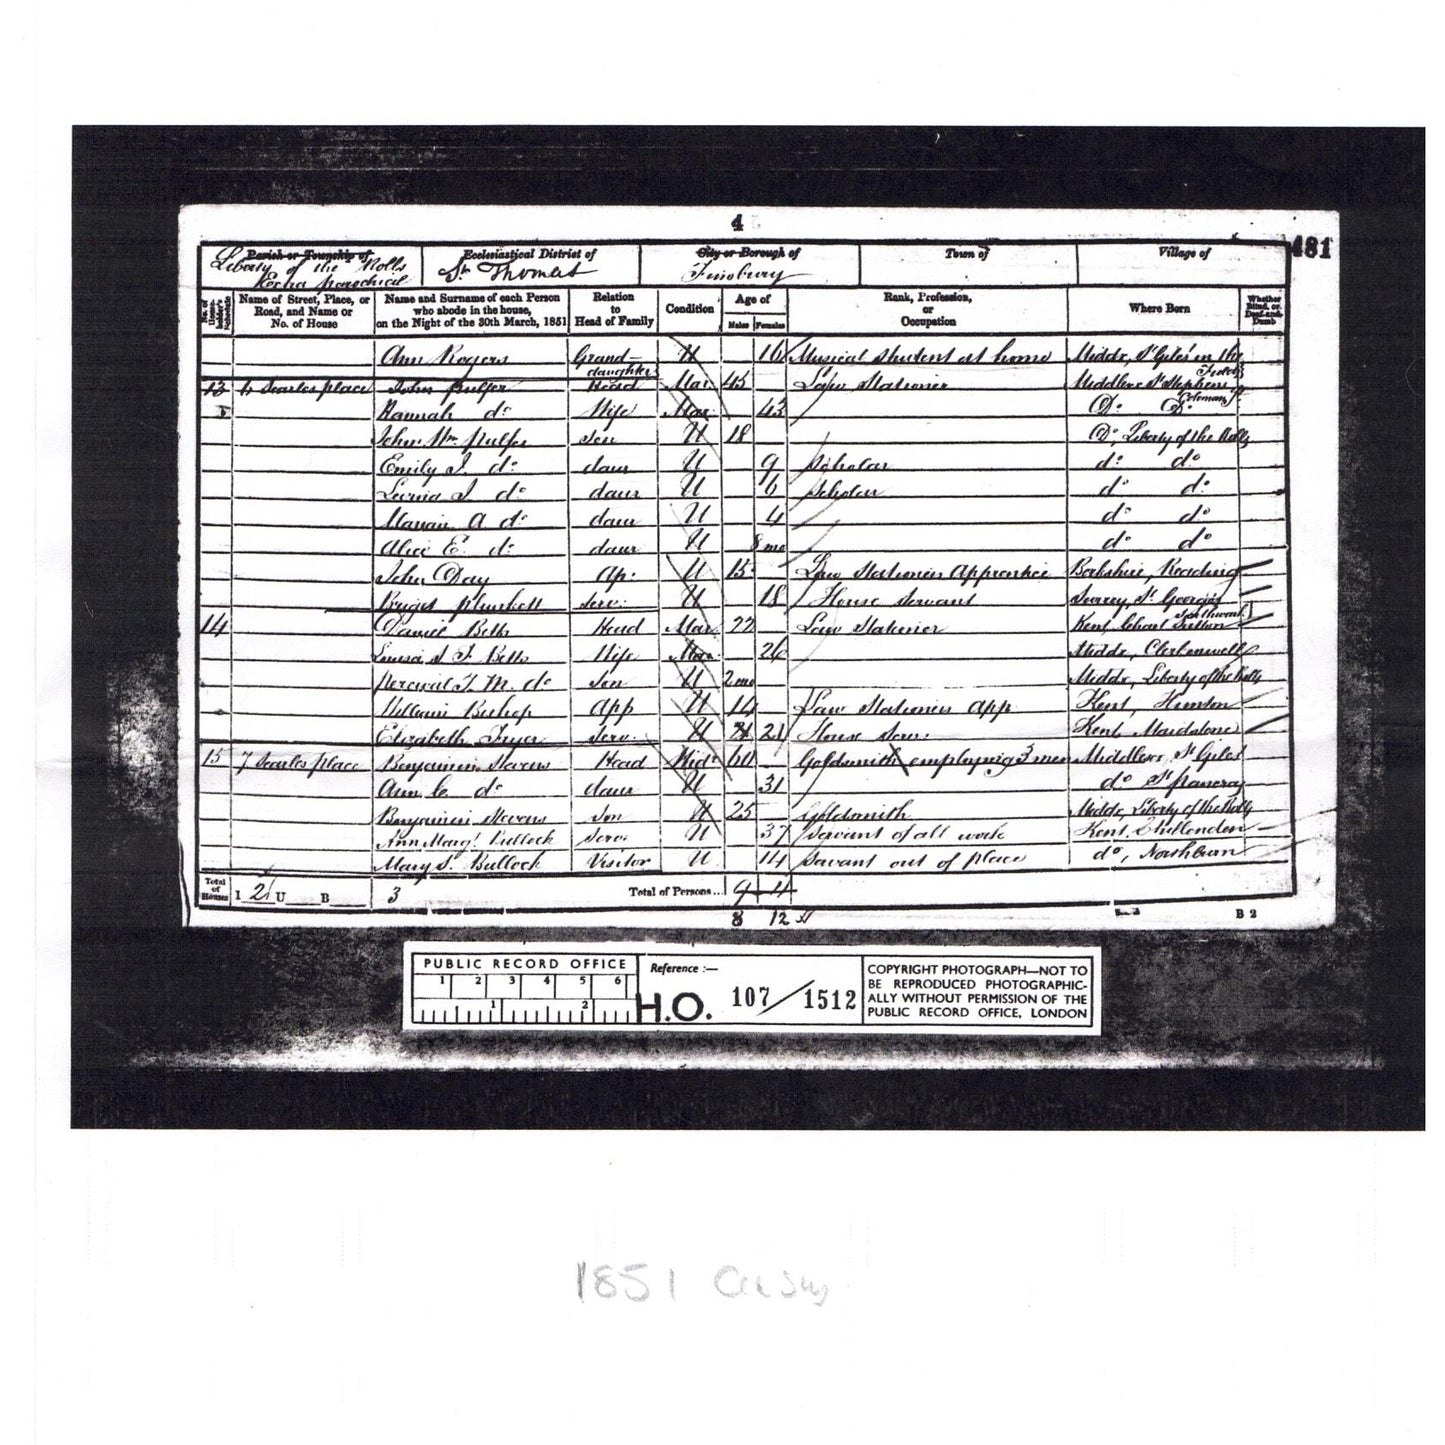 4
481
Parish or Township of Ecclesiastical District of City or Borough of Town of Village of
Liberty of the Rolls St Thomas Finsbury
Extra parochial
No. of House-holder's Schedule Name of Street, Place, or Road, and Name or No. of House Name and Surname of each Person who abode in the house, on the Night of the 30th March, 1851 Relation to Head of Family Condition Age of Males Females Rank, Profession, or Occupation Where Born Whether Blind, or Deaf-and-Dumb
Ann Rogers Grand-daughter U 16 Musical student at home Middx, St Giles in the Fields
13 6 Searles place John Pulfer Head Mar 45 Law Stationer Middlesex St Stephens Coleman St
Hannah do Wife Mar 43 Do Do
John Wm Pulfer Son U 18 Do, Liberty of the Rolls
Emily J. do daur U 9 Scholar do do
J. do daur U 6 Scholar do do
A do daur U 4 do do
Alice E. do daur U 8 mo do do
John Day Ap: U 15 Law Stationers Apprentice Berkshire, Reading
Briget Plunkett Serv: U 18 House Servant Surrey, St Georges Southwark
14 Daniel Betts Head Mar 22 Law Stationer Kent, Chart Sutton
Louisa Betts Wife Mar 26 Middx, Clerkenwell
Percival T. M. do Son U 2 mo Middx, Liberty of the Rolls
William Bishop App U 14 Law Stationers App Kent, Hunton
Elizabeth Fryer Serv: U 21 House Serv: Kent, Maidstone
15 7 Searles place Benjamin Stevens Head Widr 60 Goldsmith employing 3 men Middlesex, St Giles
Ann C. do daur U 31 do St Pancras
Benjamin Stevens Son U 25 Goldsmith Middx, Liberty of the Rolls
Ann Margt Bullock Serv: U 37 Servant of all work Kent, Chillenden
Mary S. Bullock Visitor U 14 Servant out of place do, Northbourn
Total of Houses I 2 U B 3 Total of Persons... 9 11
8 12
B 2
PUBLIC RECORD OFFICE
1 2 3 4 5 6
1 2
Reference :—
H.O. 107/1512
COPYRIGHT PHOTOGRAPH—NOT TO
BE REPRODUCED PHOTOGRAPHIC-
ALLY WITHOUT PERMISSION OF THE
PUBLIC RECORD OFFICE, LONDON
1851 Census